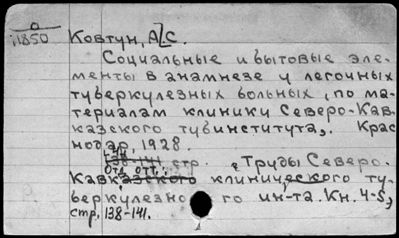 0
11850
Ковтун, А.С.
Социальные и бытовые эле-
менты в анамнезе у легочных
туберкулезных больных, по ма-
териалам клиники Северо-Кав-
казского тубинститута,. Крас
нодар, 1928.
138-141 стр. „Труды Северо.
Отд. отт.:
Кавказского клинического ту-
беркулезно го ин-та. Кн. 4-5,
стр. 138-141.